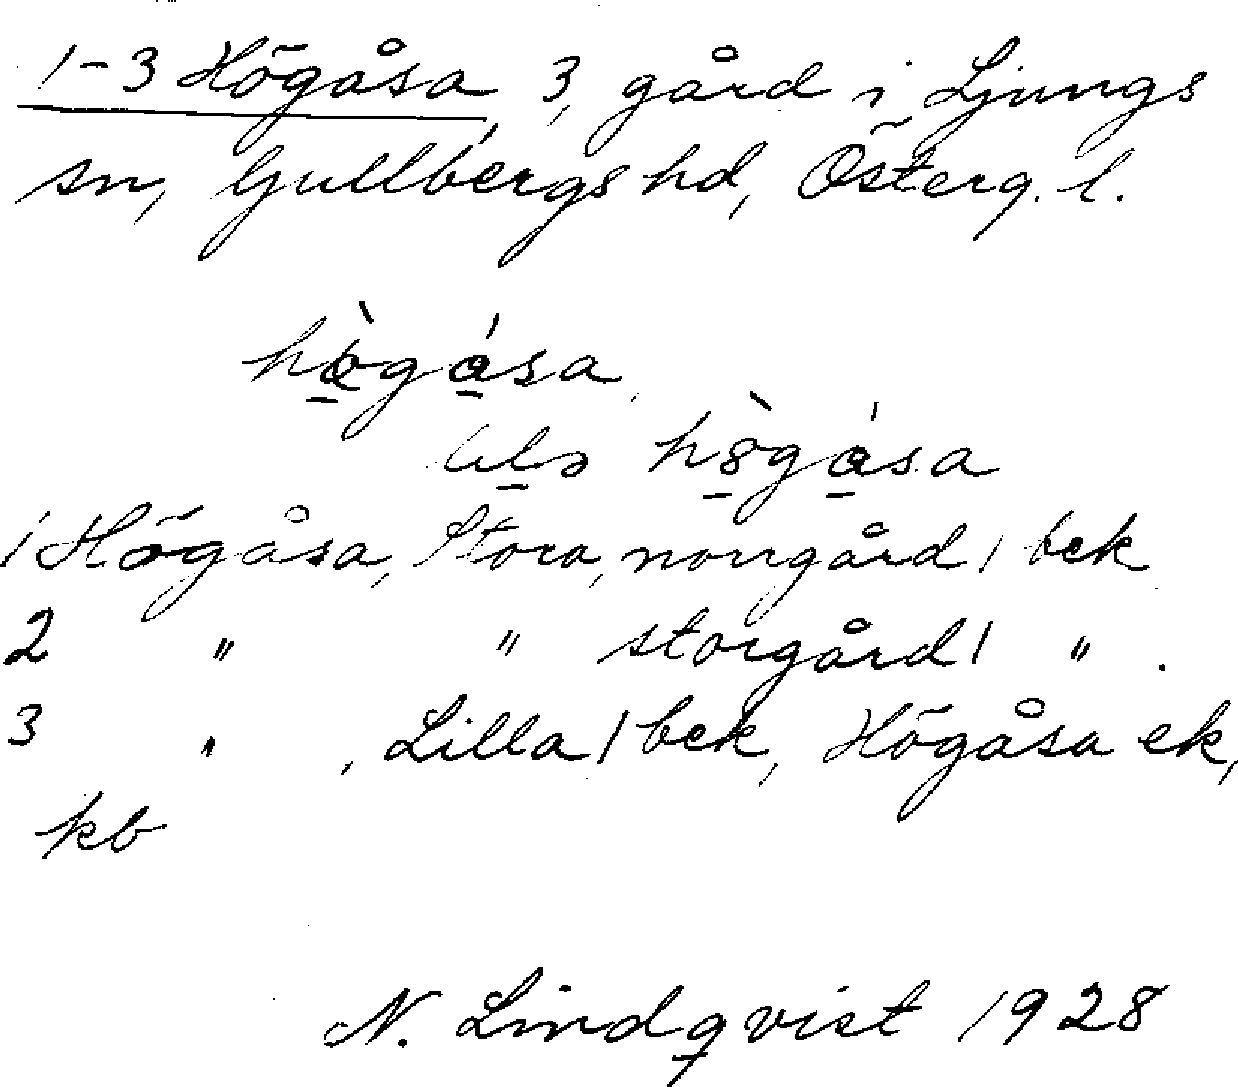 1-3 Högåsa, 3, gård i Ljungs
sn, Gullbergs hd, Österg. l.
hö̀gǻsa
hö̀gǻsa
1 Högåsa, Stora, norrgård 1 bek
2 " " storgård 1 " .
3 " , Lilla 1 bek, Högåsa ek,
kb
N. Lindqvist 1928